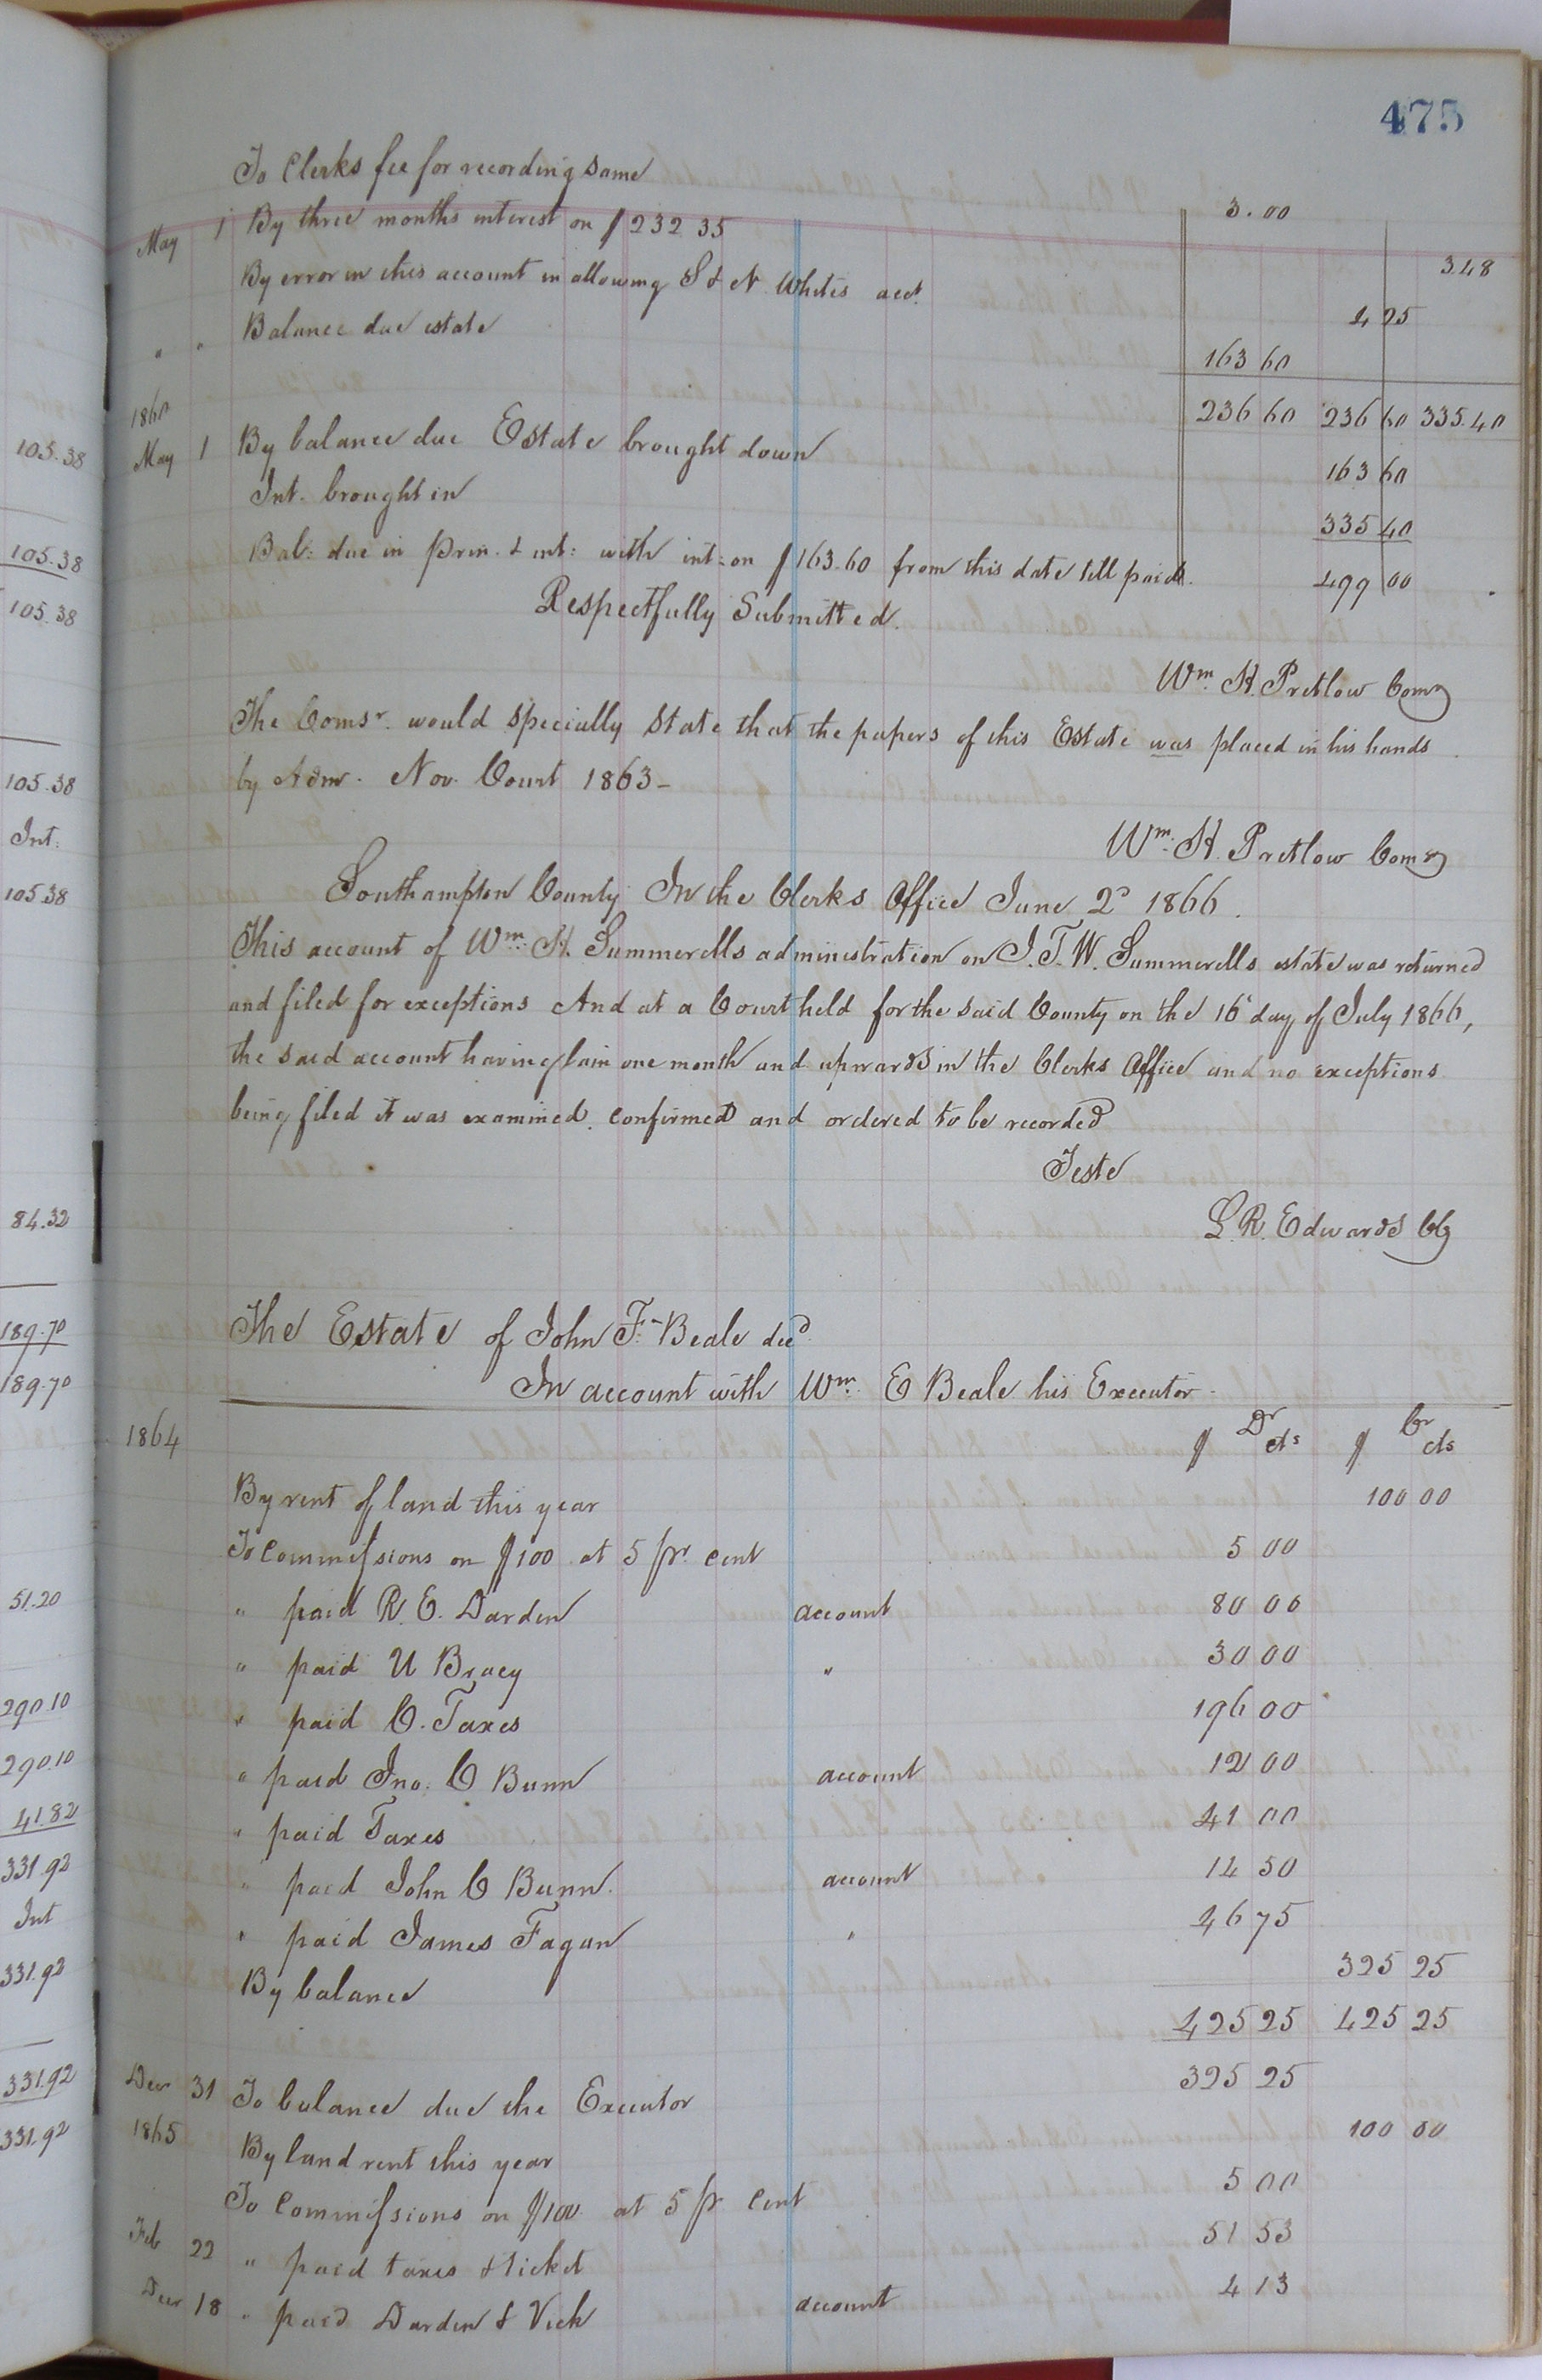 475
To Clerks fee for recording same 3.00
May 1 By three months interest on $232.35 3.48
By error in this account in allowing S & N. Whites acct. 4 25
" " Balance due estate 163 60
236 60 236 60 335.40
1860
May 1 By balance due Estate brought down 163 60
Int. brought in 335 40
Bal: due in prin. & int: with int: on $163.60 from this date till paid. 499 00
Respectfully Submitted.
Wm. H. Pretlow Comr
The Comsr. would specially state that the papers of this Estate was placed in his hands
by Adm. Nov. Court 1863 -
Wm. H. Pretlow Comr
Southampton County In the Clerks Office June 2d 1866.
This account of Wm. H. Summerells administration on J. T. W. Summerells estate was returned
and filed for exceptions And at a Court held for the said County on the 16 day of July 1866,
the said account having lain one month and upwards in the Clerks Office and no exceptions
being filed it was examined, confirmed and ordered to be recorded
Teste
L. R. Edwards Clk
The Estate of John F. Beale decd.
In account with Wm. E Beale his Executor -
1864 Dr Cr
$ cts $ cts
By rent of land this year 100 00
To Commissions on $100 at 5 pr. cent 5 00
" paid R. E. Darden account 80 00
" paid U Bracy " 30 00
" paid C. Taxes 196 00
" paid Jno. C Bunn account 12 00
" paid Taxes 41 00
" paid John C Bunn. account 14 50
" paid James Fagan " 46 75
By balance 325 25
425 25 425 25
Decr 31 To balance due the Executor 325 25
1865 By land rent this year 100 00
To Commissions on $100 at 5 pr Cent 5 00
Feb 22 " paid taxes & ticket 51 53
Decr 18 " paid Darden & Vick account 4 13
105.38
105.38
105.38
105.38
Int:
105.38
84.32
189.70
189.70
51.20
290.10
290.10
41.82
331.92
Int
331.92
331.92
331.92